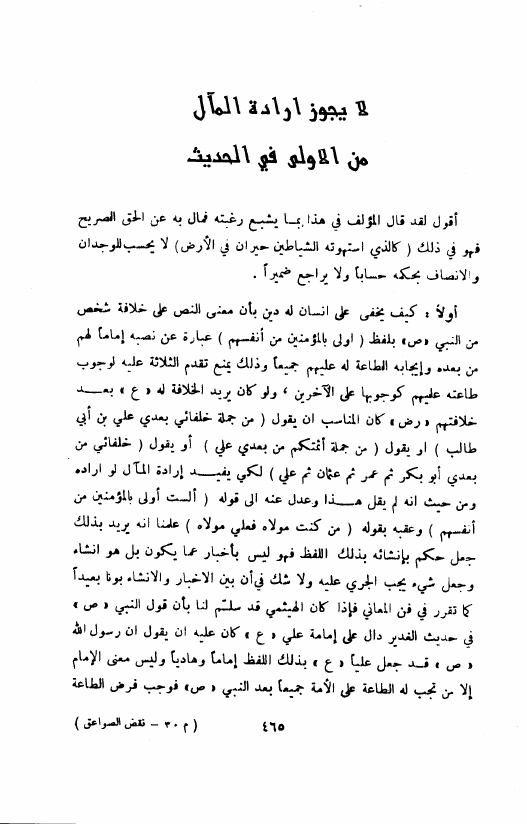 لا يجوز ارادة المآل
من الاولى في الحديث
أقول لقد قال المؤلف في هذا بما يشبع رغبته فمال به عن الحق الصريح
فهو في ذلك ( كالذي استهوته الشياطين حيران في الأرض ) لا يحسب للوجدان
والانصاف بحكمه حساباً ولا يراجع ضميراً .
أولاً : كيف يخفى على انسان له دين بأن معنى النص على خلافة شخص
من النبي «ص» بلفظ ( اولى بالمؤمنين من أنفسهم ) عبارة عن نصبه إماماً لهم
من بعده وإيجابه الطاعة له عليهم جميعاً وذلك يمنع تقدم الثلاثة عليه لوجوب
طاعته عليهم كوجوبها على الآخرين ، ولو كان يريد الخلافة له « ع » بعــد
خلافتهم «رض» كان المناسب ان يقول ( من جملة خلفائي بعدي علي بن أبي
طالب ) او يقول ( من جملة أئمتكم من بعدي علي ) أو يقول ( خلفائي من
بعدي أبو بكر ثم عمر ثم عثمان ثم علي ) لكي يفيــد إرادة المآل لو اراده
ومن حيث انه لم يقل هــذا وعدل عنه الى قوله ( ألست أولى بالمؤمنين من
أنفسهم ) وعقبه بقوله ( من كنت مولاه فعلي مولاه ) علمنا انه يريد بذلك
جعل حكم بإنشائه بذلك اللفظ فهو ليس بأخبار عما يكون بل هو انشاء
وجعل شيء يجب الجري عليه ولا شك في أن بين الاخبار والانشاء بونا بعيداً
كما تقرر في فن المعاني فإذا كان الهيثمي قد سلّم لنا بأن قول النبي « ص »
في حديث الغدير دال على إمامة علي « ع » كان عليه ان يقول ان رسول الله
« ص » قــد جعل علياً « ع » بذلك اللفظ إماماً وهادياً وليس معنى الإمام
إلا من تجب له الطاعة على الأمة جميعاً بعد النبي «ص» فوجب فرض الطاعة
٤٦٥
( م ٣٠ – نقض الصواعق )